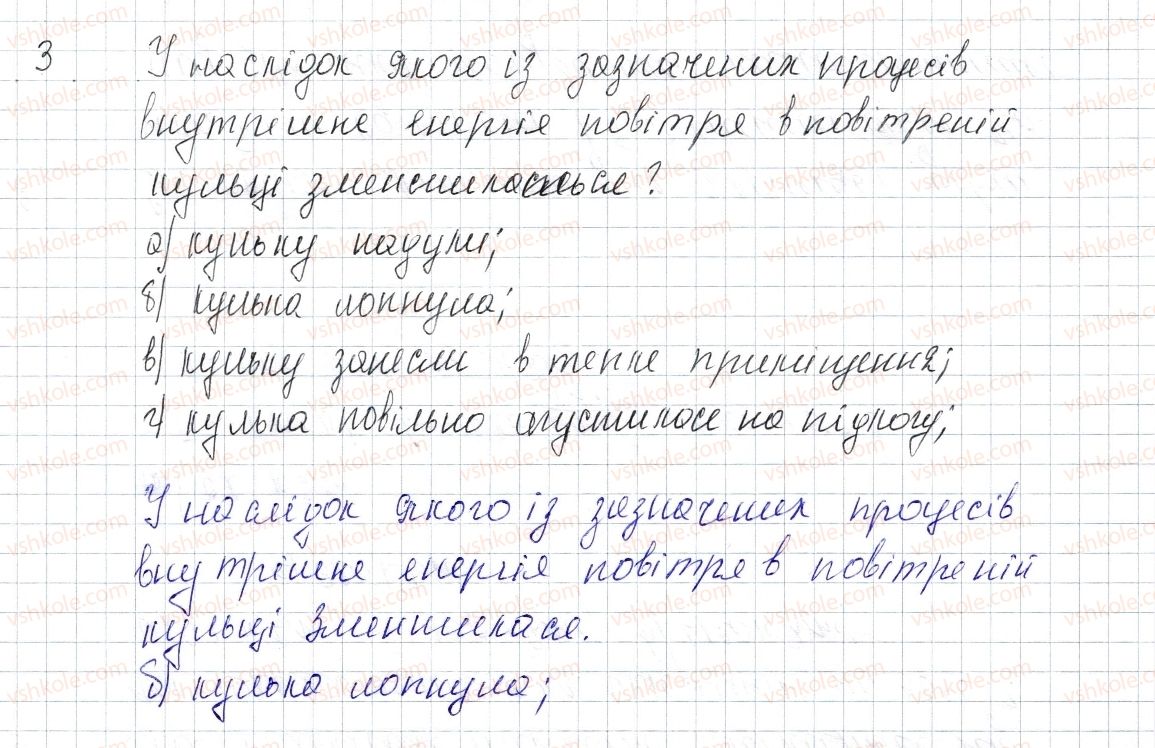 3 У наслідок якого із зазначених процесів
внутрішнє енергія повітря в повітреній
кульці зменшилася ься?
а) кульку надули;
б) кулька лопнула;
в) кульку занесли в тепле приміщення;
г) кулька повільно опустилася на підлогу;
У наслідок якого із зазначених процесів
внутрішнє енергія повітря в повітреній
кульці зменшилася.
б) кулька лопнула;